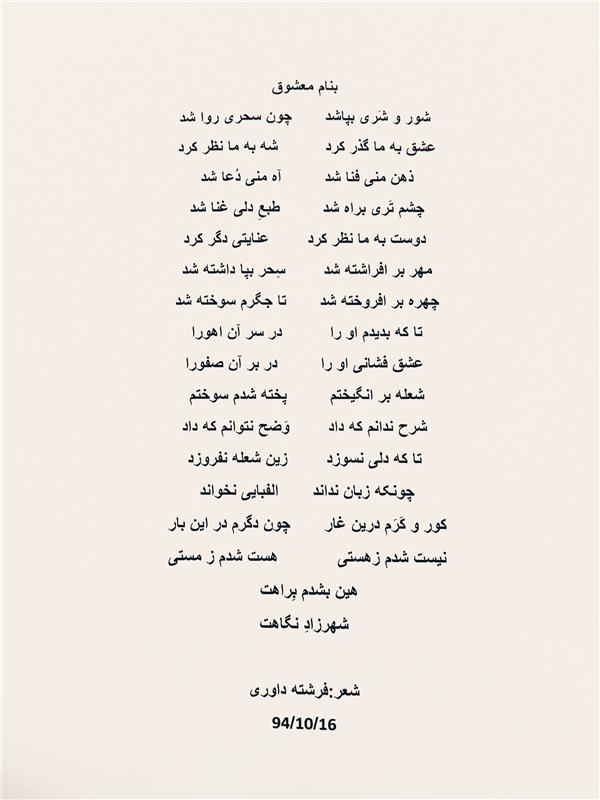 بنام معشوق
شور و شَری بپاشد چون سحری روا شد
عشق به ما گذر کرد شه به ما نظر کرد
ذهن منی فنا شد آه منی دُعا شد
چشم تَری براه شد طبعِ دلی غنا شد
دوست به ما نظر کرد عنایتی دگر کرد
مهر بر افراشته شد سِحر بپا داشته شد
چهره بر افروخته شد تا جگرم سوخته شد
تا که بدیدم او را در سر آن اهورا
عشق فشانی او را در بر آن صفورا
شعله بر انگیختم پخته شدم سوختم
شرح ندانم که داد وَضح نتوانم که داد
تا که دلی نسوزد زین شعله نفروزد
چونکه زبان نداند الفبایی نخواند
کور و کَرَم درین غار چون دگرم در این بار
نیست شدم زهستی هست شدم ز مستی
هین بشدم بِراهت
شهرزادِ نگاهت
شعر:فرشته داوری
94/10/16